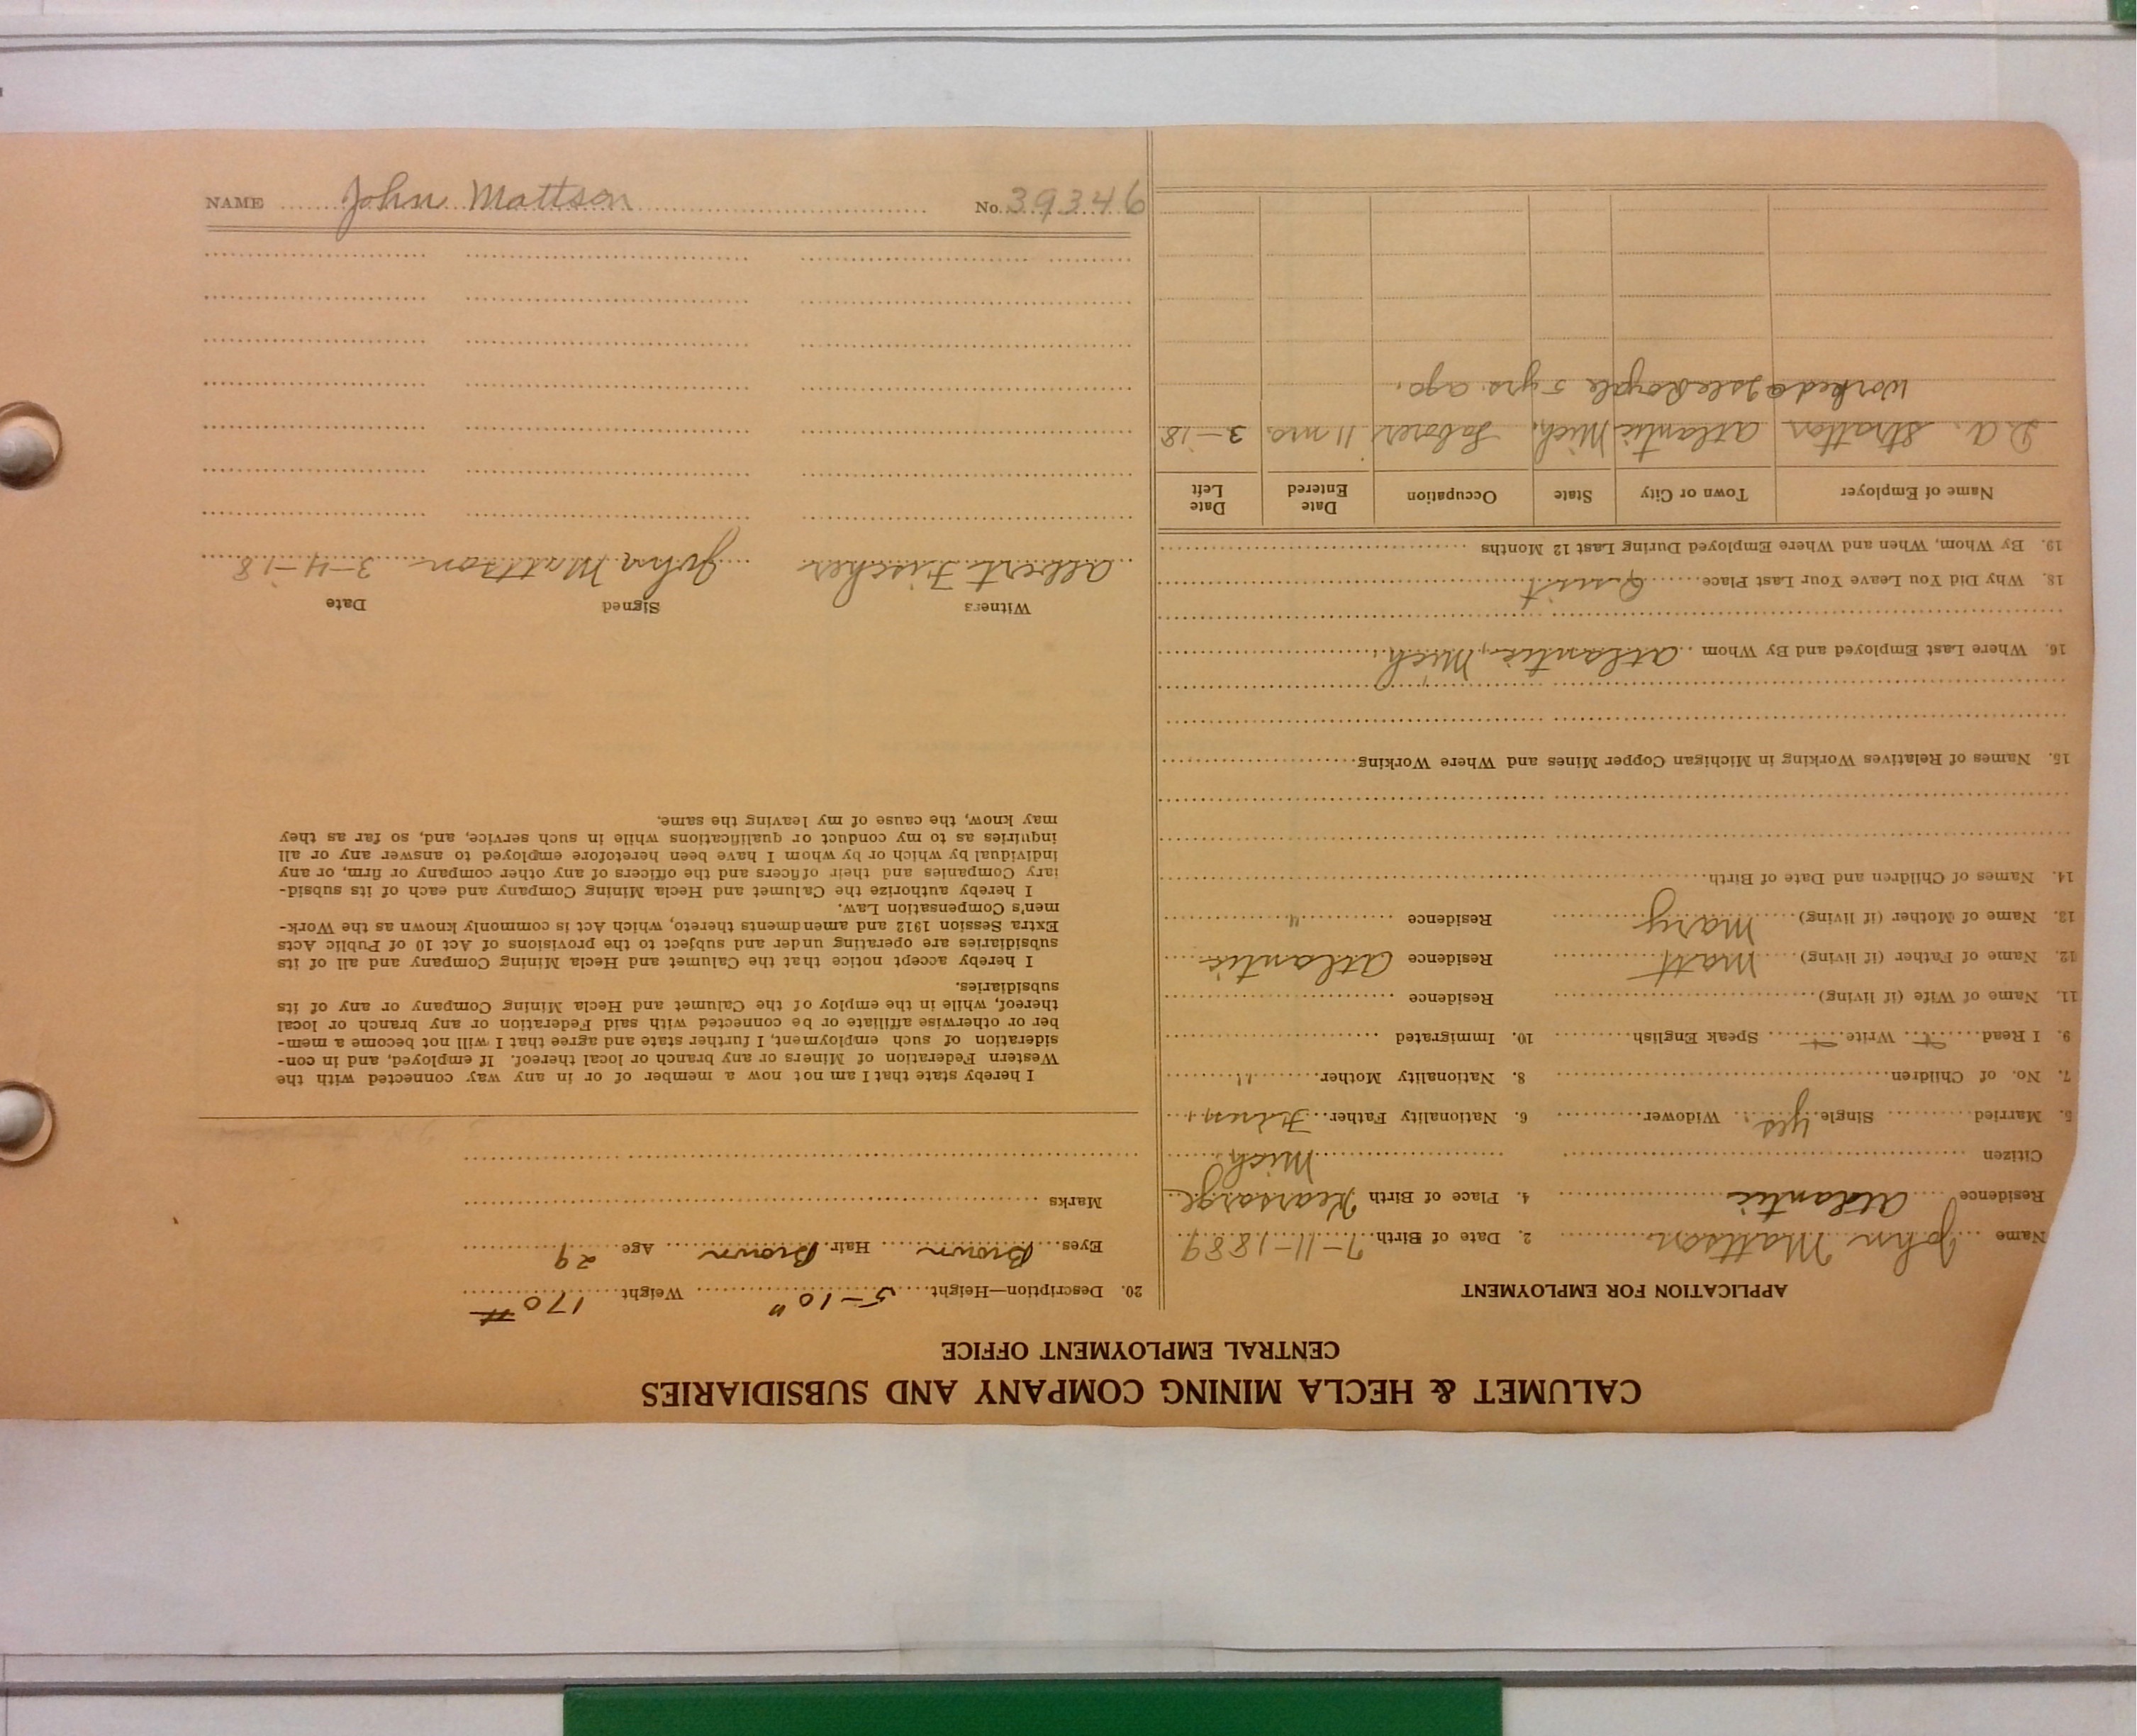 CALUMET & HECLA MINING COMPANY AND SUBSIDIARIES
CENTRAL EMPLOYMENT OFFICE
APPLICATION FOR EMPLOYMENT
Name John Mattson 2. Date of Birth 7-11-1889
Residence Atlantic 4. Place of Birth Kearsarge
Citizen Mich
5. Married Single yes Widower 6. Nationality Father Finn
7. No. of Children 8. Nationality Mother "
9. I Read Write Speak English 10. Immigrated
11. Name of Wife (if living) Residence
12. Name of Father (if living) Matt Residence Atlantic
13. Name of Mother (if living) Mary Residence "
14. Names of Children and Date of Birth
15. Names of Relatives Working in Michigan Copper Mines and Where Working
16. Where Last Employed and By Whom Atlantic, Mich.
18. Why Did You Leave Your Last Place Quit
19. By Whom, When and Where Employed During Last 12 Months
Name of Employer Town or City State Occupation Date Entered Date Left
D.A. Stratton Atlantic Mich. Laborer 11 mo. 3-18
Worked @ Isle Royale 5 yrs ago.
20. Description—Height 5-10" Weight 170 #
Eyes Brown Hair Brown Age 29
Marks
I hereby state that I am not now a member of or in any way connected with the
Western Federation of Miners or any branch or local thereof. If employed, and in con-
sideration of such employment, I further state and agree that I will not become a mem-
ber or otherwise affiliate or be connected with said Federation or any branch or local
thereof, while in the employ of the Calumet and Hecla Mining Company or any of its
subsidiaries.
I hereby accept notice that the Calumet and Hecla Mining Company and all of its
subsidiaries are operating under and subject to the provisions of Act 10 of Public Acts
Extra Session 1912 and amendments thereto, which Act is commonly known as the Work-
men's Compensation Law.
I hereby authorize the Calumet and Hecla Mining Company and each of its subsid-
iary Companies and their officers and the officers of any other company or firm, or any
individual by which or by whom I have been heretofore employed to answer any or all
inquiries as to my conduct or qualifications while in such service, and, so far as they
may know, the cause of my leaving the same.
Witness Signed Date
Albert Fischer John Mattson 3-4-18
NAME John Mattson No. 39346